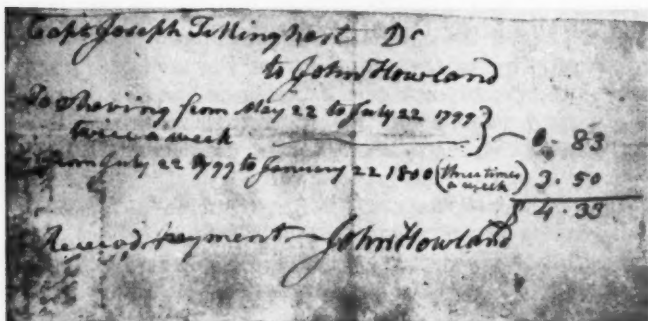 Capt Joseph Tillinghast Dr
to John Howland
To Shaving from May 22 to July 22 1799
twice a week 0. 83
From July 22 1799 to January 22 1800 (three times a week) 3. 50
$ 4. 33
Received payment John Howland